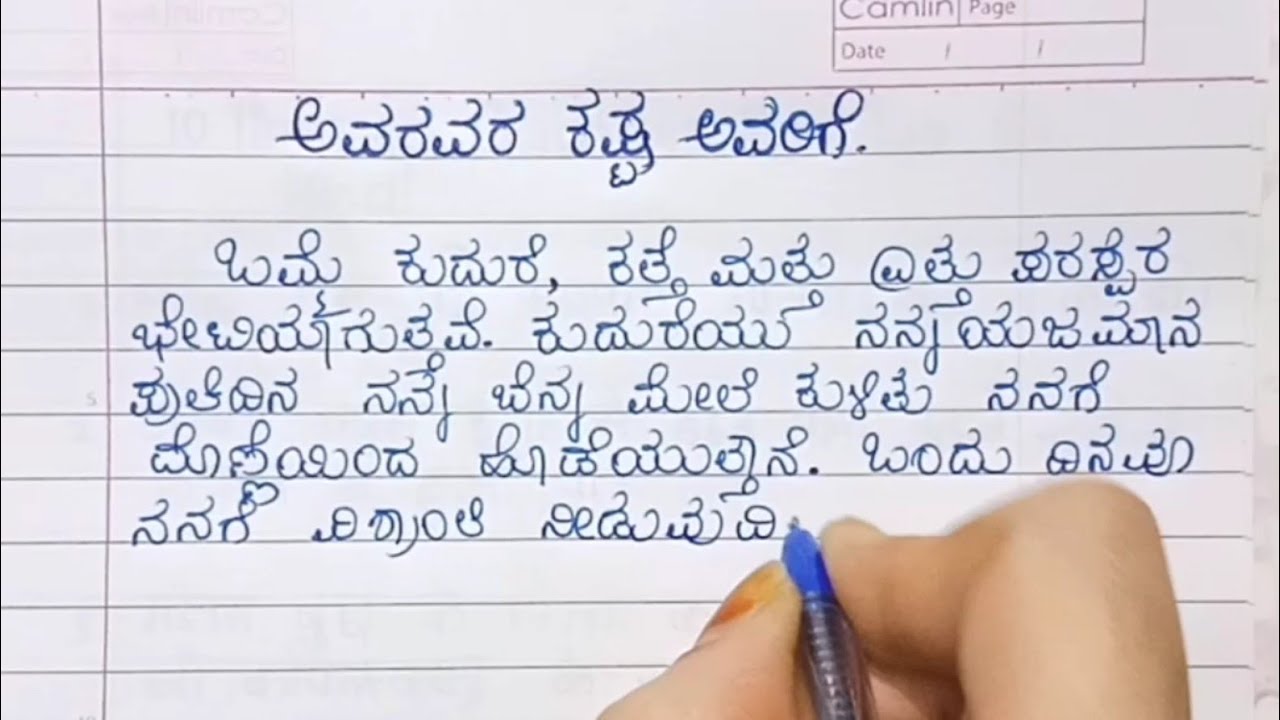 Camlin Page
Date / /
ಅವರವರ ಕಷ್ಟ ಅವರಿಗೆ.
ಒಮೆ ಕುದುರೆ, ಕತ್ತೆ ಮತ್ತು ಎತ್ತು ಪರಸ್ಪರ
ಭೇಟಿಯಾಗುತ್ತವೆ. ಕುದುರೆಯು ನನ್ನ ಯಜಮಾನ
ಪ್ರತಿದಿನ ನನ್ನ ಬೆನ್ನ ಮೇಲೆ ಕುಳಿತು ನನಗೆ
ಮೊಣ್ಣೆಯಿಂದ ಹೊಡೆಯುತ್ತಾನೆ. ಒಂದು ದಿನವೂ
ನನಗೆ ವಿಶ್ರಾಂತಿ ನೀಡುವುದಿ